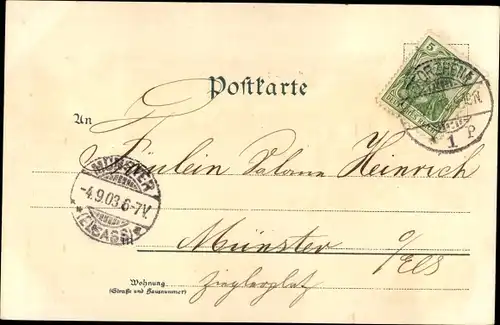 5
Postkarte
An
Fräulein Salome Heinrich
MÜNSTER
-4.9.03.6-7V.
* (ELSASS) *
in
Münster o/Els
Wohnung
(Straße und Hausnummer)
Zieglerplatz
* 1 P